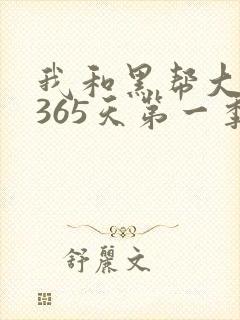 我和黑帮大
365天第一季
舒丽文